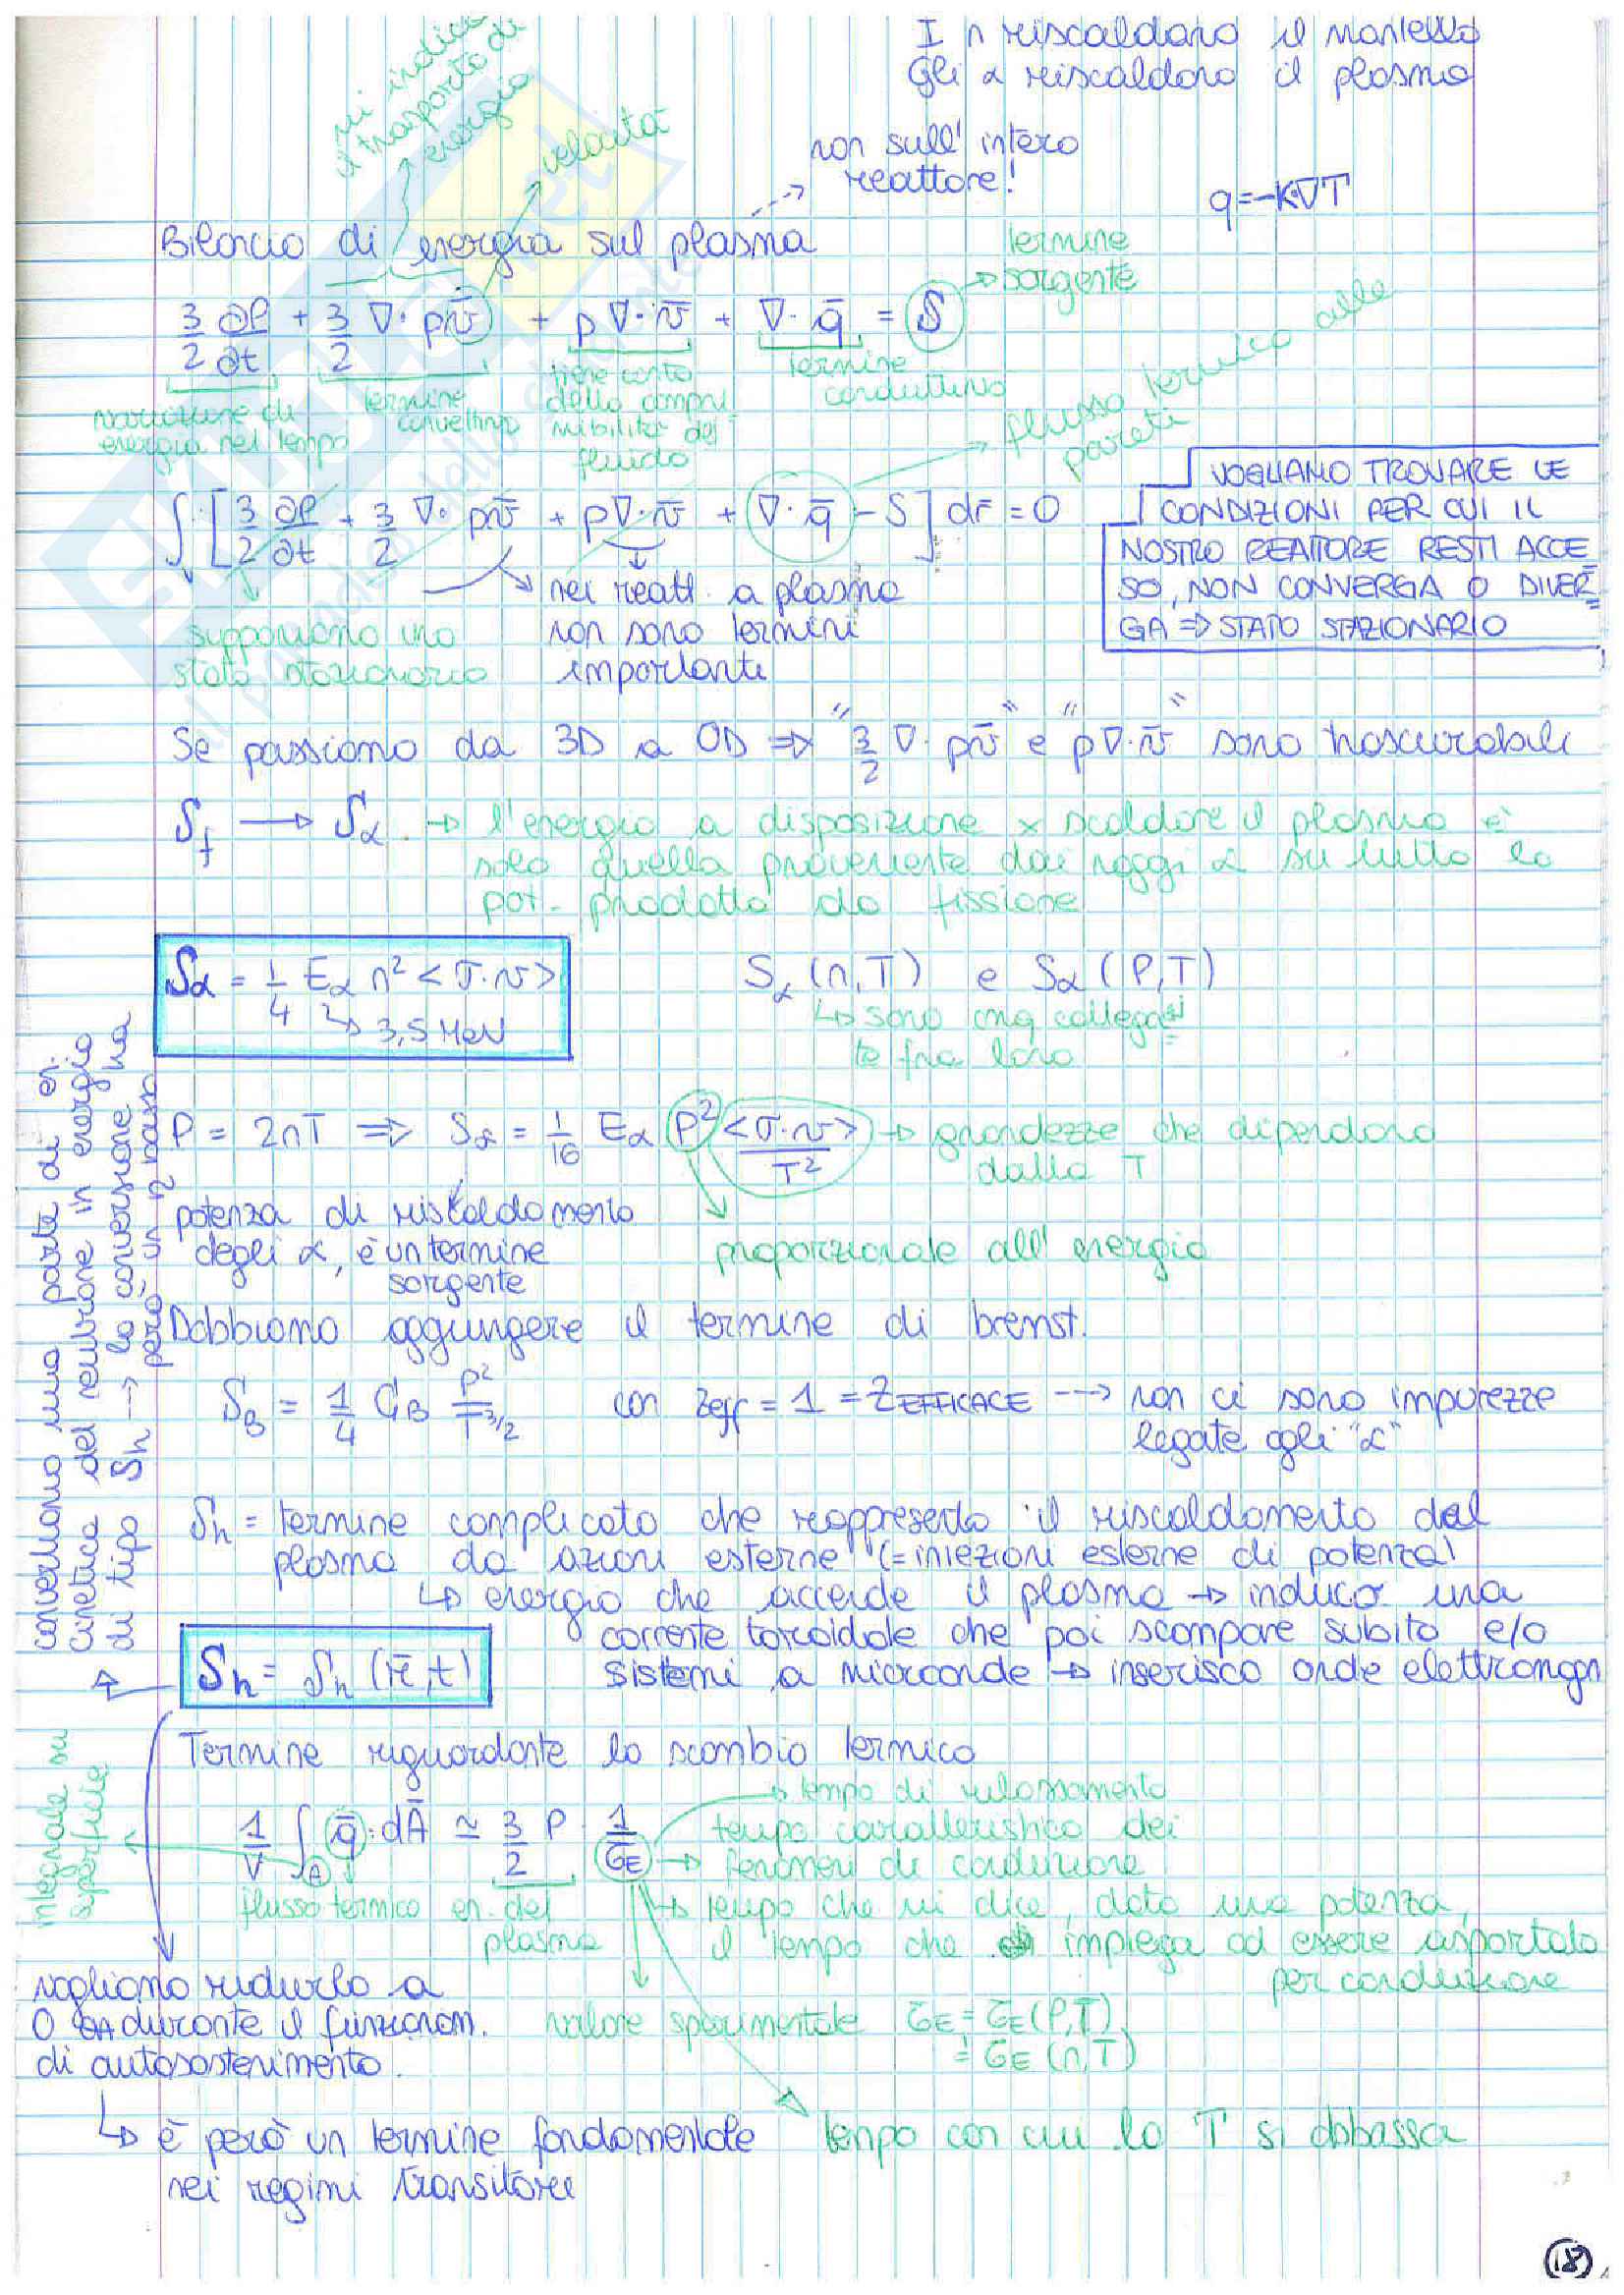 I n riscaldano il mantello
Gli α riscaldano il plasma
mi indica
il trasporto di
energia
velocità
non sull' intero
reattore!
q=-K∇T
Bilancio di energia sul plasma
termine
sorgente
3/2 ∂P/∂t + 3/2 ∇· pv̄ + p∇·v̄ + ∇· q̄ = S
variazione di
energia nel tempo
termine
convettivo
tiene conto
della compri
mibilità del
fluido
termine
conduttivo
flusso termico alle
pareti
∫ [3/2 ∂P/∂t + 3/2 ∇· pv̄ + p∇·v̄ + ∇· q̄ - S] dr̄ = 0
VOGLIAMO TROVARE LE
CONDIZIONI PER CUI IL
NOSTRO REATTORE RESTI ACCE
SO, NON CONVERGA O DIVER
GA ⇒ STATO STAZIONARIO
supponiamo uno
stato stazionario
nei reatt. a plasma
non sono termini
importanti
Se passiamo da 3D a 0D ⇒ "3/2 ∇· pv̄" e "p∇·v̄" sono trascurabili
Sf → Sα → l'energia a disposizione x scaldare il plasma è
solo quella proveniente dai raggi α su tutta la
pot. prodotta da fissione
Sα = 1/4 Eα n² <σ·v>
↳ 3,5 MeV
Sα (n,T) e Sα (P,T)
↳ sono cmq collega
te fra loro
P = 2nT ⇒ Sα = 1/16 Eα P² <σ·v>/T² → grandezze che dipendono
dalla T
potenza di riscaldamento
degli α, è un termine
sorgente
proporzionale all' energia
Dobbiamo aggiungere il termine di bremst.
SB = 1/4 CB P²/T^3/2 con Zeff = 1 = ZEFFICACE --> non ci sono impurezze
legate agli "α"
Sh = termine complicato che rappresenta il riscaldamento del
plasma da azioni esterne (=iniezioni esterne di potenza)
↳ energia che accende il plasma → induco una
corrente toroidale che poi scompare subito e/o
sistemi a microonde → inserisco onde elettromagn
Sh = Sh (r̄,t)
convertiamo una parte di en.
cinetica del neutrone in energia
di tipo Sh --> la conversione ha
però un η basso
Termine riguardante lo scambio termico
integrale su
superficie
1/V ∫A q̄·dĀ ≃ 3/2 P 1/τE
flusso termico
en. del
plasma
→ tempo di rilassamento
tempo caratteristico dei
→ fenomeni di conduzione
↳ tempo che mi dice, data una potenza,
il tempo che impiega ad essere asportata
per conduzione
vogliamo ridurlo a
0 durante il funzionam.
di autosostenimento.
valore sperimentale τE = τE (P,T)
= τE (n,T)
↳ è però un termine fondamentale
nei regimi transitori
tempo con cui la T si abbassa
18